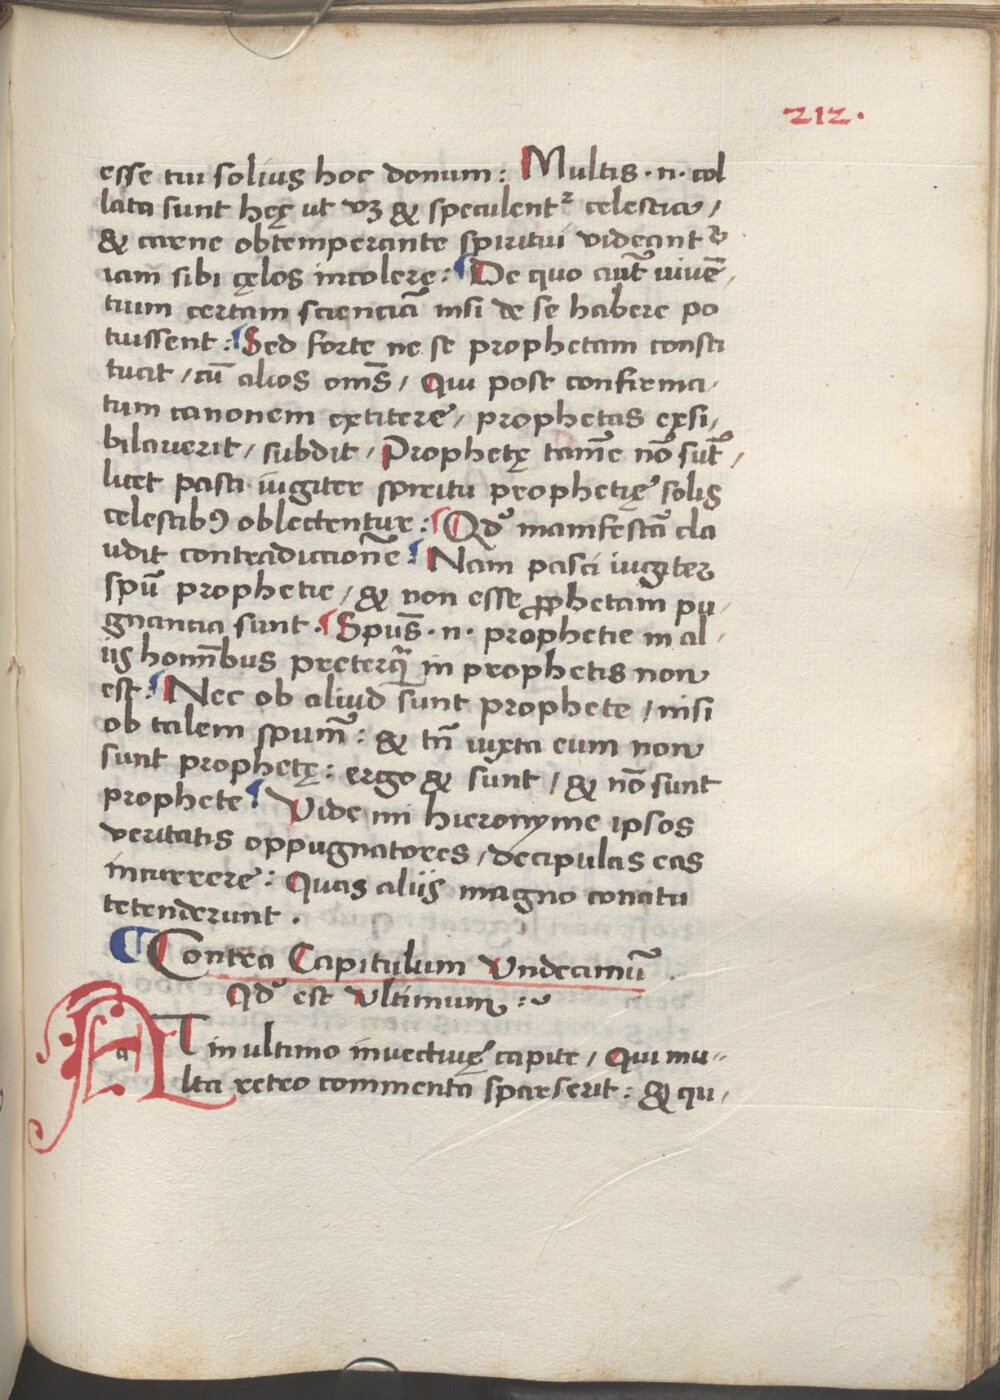 212.
esse tui solius hoc donum: Multis · n · col
lata sunt hęc ut vꝫ & speculentr celestia /
& carne obtemperante spiritui videantr
iam sibi cęlos incolere: De quo aut̄ uiuē /
tium certam scienciā nisi de se habere po
tuissent: Sed forte ne se prophetam consti
tuat / cū alios om̄s / Qui post confirma /
tum canonem extitere / prophetas exsi /
bilauerit / subdit / Prophetę tam̄e nō sūt /
licet pasti iugiter spiritu prophetię solis
celestibꝰ oblectentur: Qd̄ manifestā cla
udit contradictionē: Nam pasci iugiter
spū prophetie / & non esse ꝓphetam pu /
gnantia sunt. Spūs · n · prophetie in al /
iis hoīnibus preterq̄ in prophetis non
est: Nec ob aliud sunt prophete / nisi
ob talem spum̄: & tn̄ iuxta eum non
sunt prophetę: ergo & sunt / & nō sunt
prophete Vide mi hieronyme ipsos
veritatis oppugnatores / decipulas eas
incurrere: Quas aliis magno conatu
tetenderunt.
Contra Capitulum Vndecimū.
Qd̄ est Vltimum:
AT in ultimo inuectiuę capite / Qui mu-
lta retro commenta sparserit: & qu /